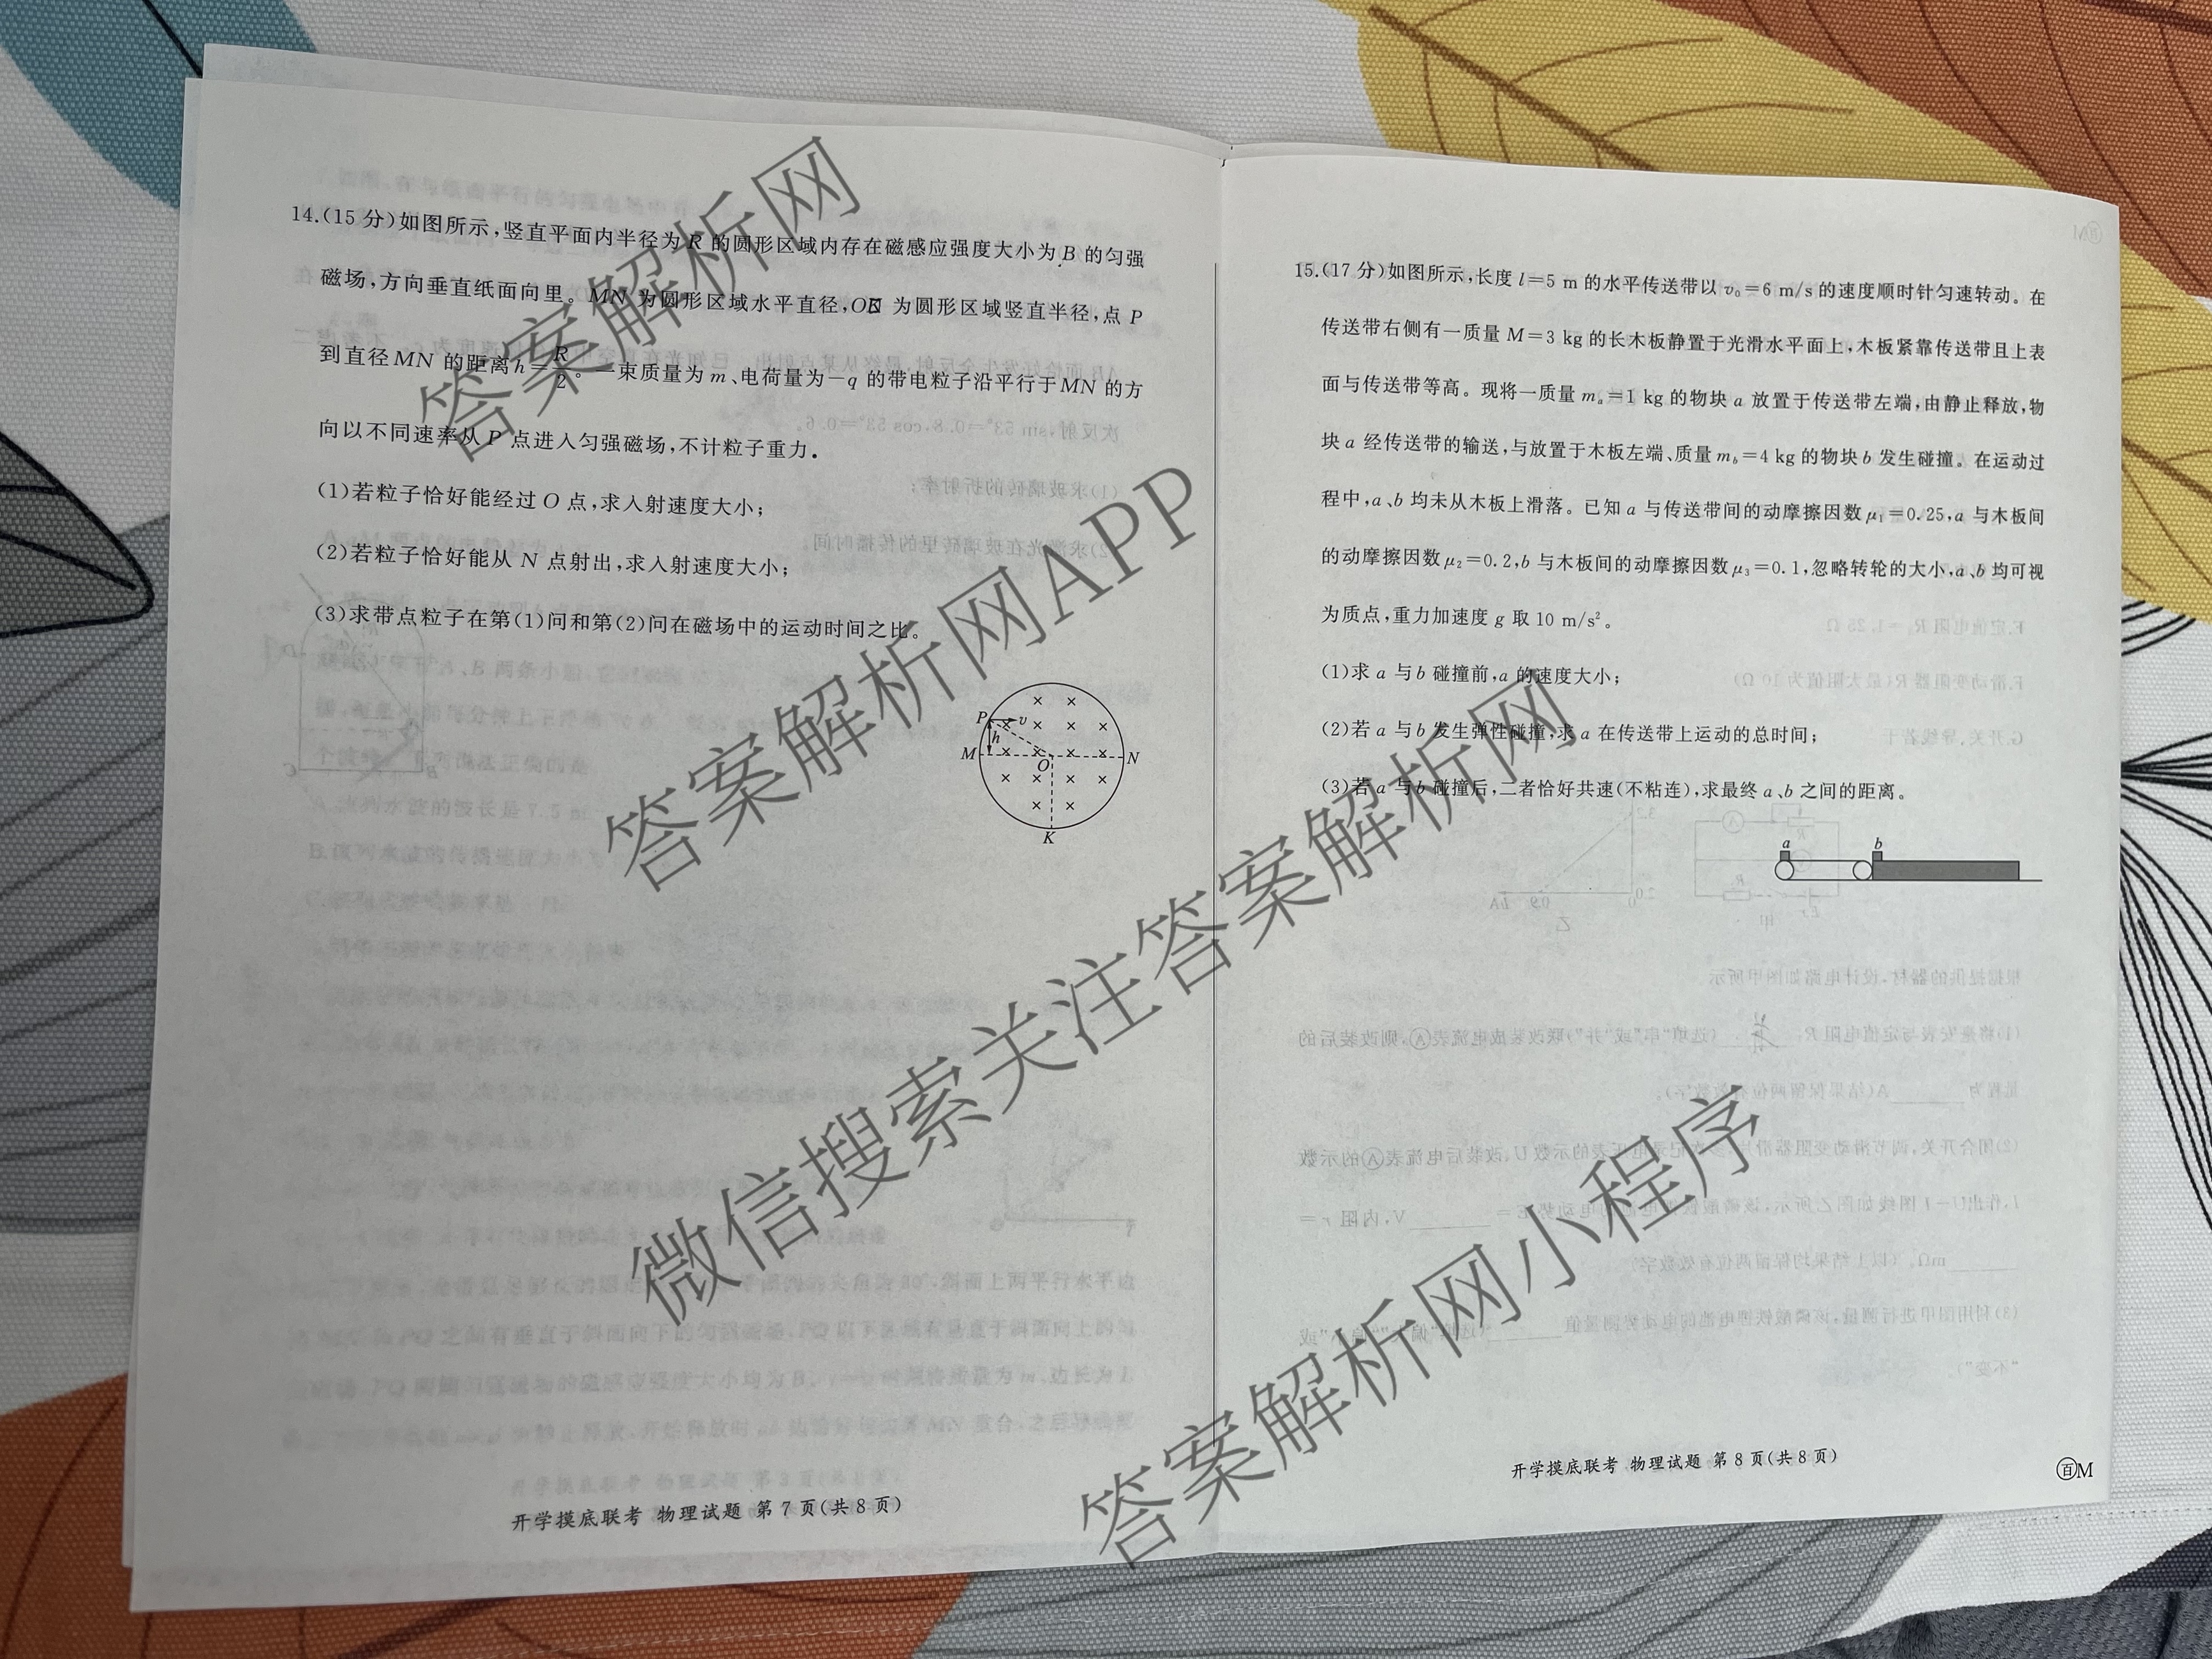 14.(15 分)如图所示,竖直平面内半径为 R 的圆形区域内存在磁感应强度大小为 B 的匀强
磁场,方向垂直纸面向里。MN 为圆形区域水平直径,OK 为圆形区域竖直半径,点 P
到直径 MN 的距离 h=R/2。一束质量为 m、电荷量为-q 的带电粒子沿平行于 MN 的方
向以不同速率从 P 点进入匀强磁场,不计粒子重力.
(1)若粒子恰好能经过 O 点,求入射速度大小;
(2)若粒子恰好能从 N 点射出,求入射速度大小;
(3)求带点粒子在第(1)问和第(2)问在磁场中的运动时间之比。
P v
h
M O N
K
开学摸底联考 物理试题 第 7 页(共 8 页)
15.(17 分)如图所示,长度 l=5 m 的水平传送带以 v₀=6 m/s 的速度顺时针匀速转动。在
传送带右侧有一质量 M=3 kg 的长木板静置于光滑水平面上,木板紧靠传送带且上表
面与传送带等高。现将一质量 mₐ=1 kg 的物块 a 放置于传送带左端,由静止释放,物
块 a 经传送带的输送,与放置于木板左端、质量 m_b=4 kg 的物块 b 发生碰撞。在运动过
程中,a、b 均未从木板上滑落。已知 a 与传送带间的动摩擦因数 μ₁=0.25,a 与木板间
的动摩擦因数 μ₂=0.2,b 与木板间的动摩擦因数 μ₃=0.1,忽略转轮的大小,a、b 均可视
为质点,重力加速度 g 取 10 m/s²。
(1)求 a 与 b 碰撞前,a 的速度大小;
(2)若 a 与 b 发生弹性碰撞,求 a 在传送带上运动的总时间;
(3)若 a 与 b 碰撞后,二者恰好共速(不粘连),求最终 a、b 之间的距离。
a b
开学摸底联考 物理试题 第 8 页(共 8 页)
百M
答案解析网
答案解析网APP
微信搜索关注答案解析网
答案解析网小程序